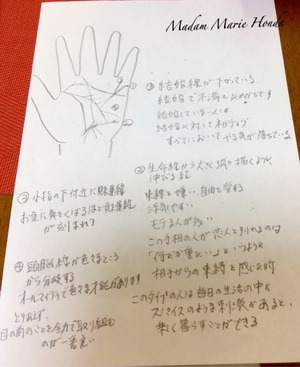 Madam Marie Honda
① 結婚線が下がっている
結婚で不満をためがちです
結婚していない人も
結婚に対してネガティブ
すべてにおいてやる気が落ちている
② 生命線から大きく弧を描くように
伸びる線
束縛を嫌い 自由を愛する
浮気やすい
モテる人が多い
この手相の人が恋人と別れるのは
「何だか重たい」というように
相手からの束縛を感じた時
このタイプの人は毎日の生活の中で
スパイスのような刺激があると、
楽しく暮らすことができる
③ 小指の下付近に財運線
お金に
財運線
が刻まれる
④ 頭脳線が色々なところ
から分岐する
オールマイティで色々な才能があります
とりあえず、
目の前のことを全力で取り組む
のが一番良い